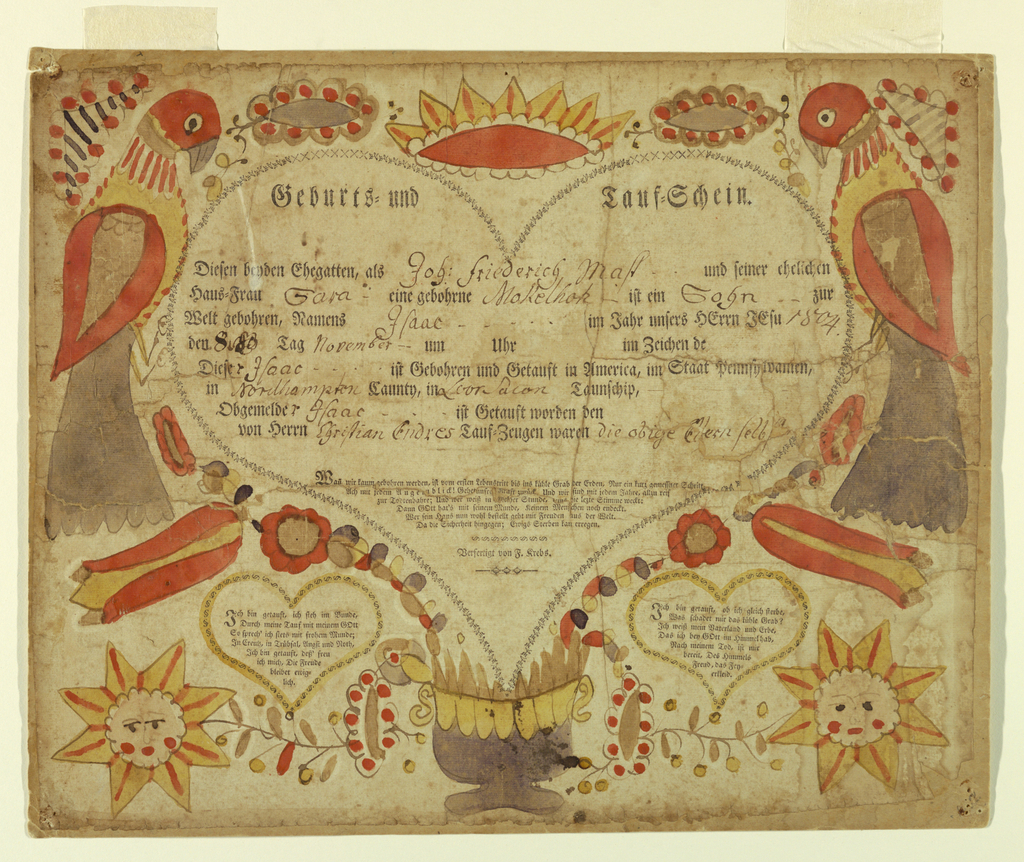 Geburts- und Tauf-Schein.
Diesen beyden Ehegatten, als Joh: Friederich Mast und seiner ehelichen
Haus-Frau Sara eine gebohrne Mokelhok ist ein Sohn zur
Welt gebohren, Namens Isaac im Jahr unsers HErrn JEsu 1804.
den Tag November um Uhr im Zeichen de
Dieser Isaac ist Gebohren und Getauft in America, im Staat Pennsylvanien,
in Nordhampton Caunty, in Taunschip,
Obgemelder Isaac ist Getauft worden den
von Herrn Christian Endres Tauf-Zeugen waren die obige Eltern selbst
Was wir kaum gebohren werden, ist vom ersten Lebenstritt bis ins kühle Grab der Erden, Nur ein kurz gemessner Schritt,
Ach mit jedem Augenblick! Gehet unsre Kraft zurück, Und wir sind mit jedem Jahre, allzu reif
zur Todtenbahre; Und wer weiß in welcher Stunde, uns die lezte Stimme weckt:
Dann GOtt hat's mit seinem Munde, Keinem Menschen noch endeckt.
Wer sein Haus nun wohl bestellt geht mit Freuden aus der Welt.
Da die Sicherheit hingegen; Ewigs Sterben kan erregen.
Verfertigt von F. Krebs.
Ich bin getauft, ich steh im Bunde,
Durch meine Tauf mit meinem GOtt
So sprech' ich stets mit frohem Munde;
In Creuz, in Trübsal, Angst und Noth,
Ich bin getauft, deß' freu
ich mich, Die Freude
bleibet ewig-
lich.
Ich bin getauft, ob ich gleich sterbe,
Was schadet mir das kühle Grab?
Ich weiß mein Vaterland und Erbe,
Das ich bey GOtt im Himmel hab,
Nach meinem Tod, ist mir
bereit, Des Himmels
Freud, das Fey-
erkleid.